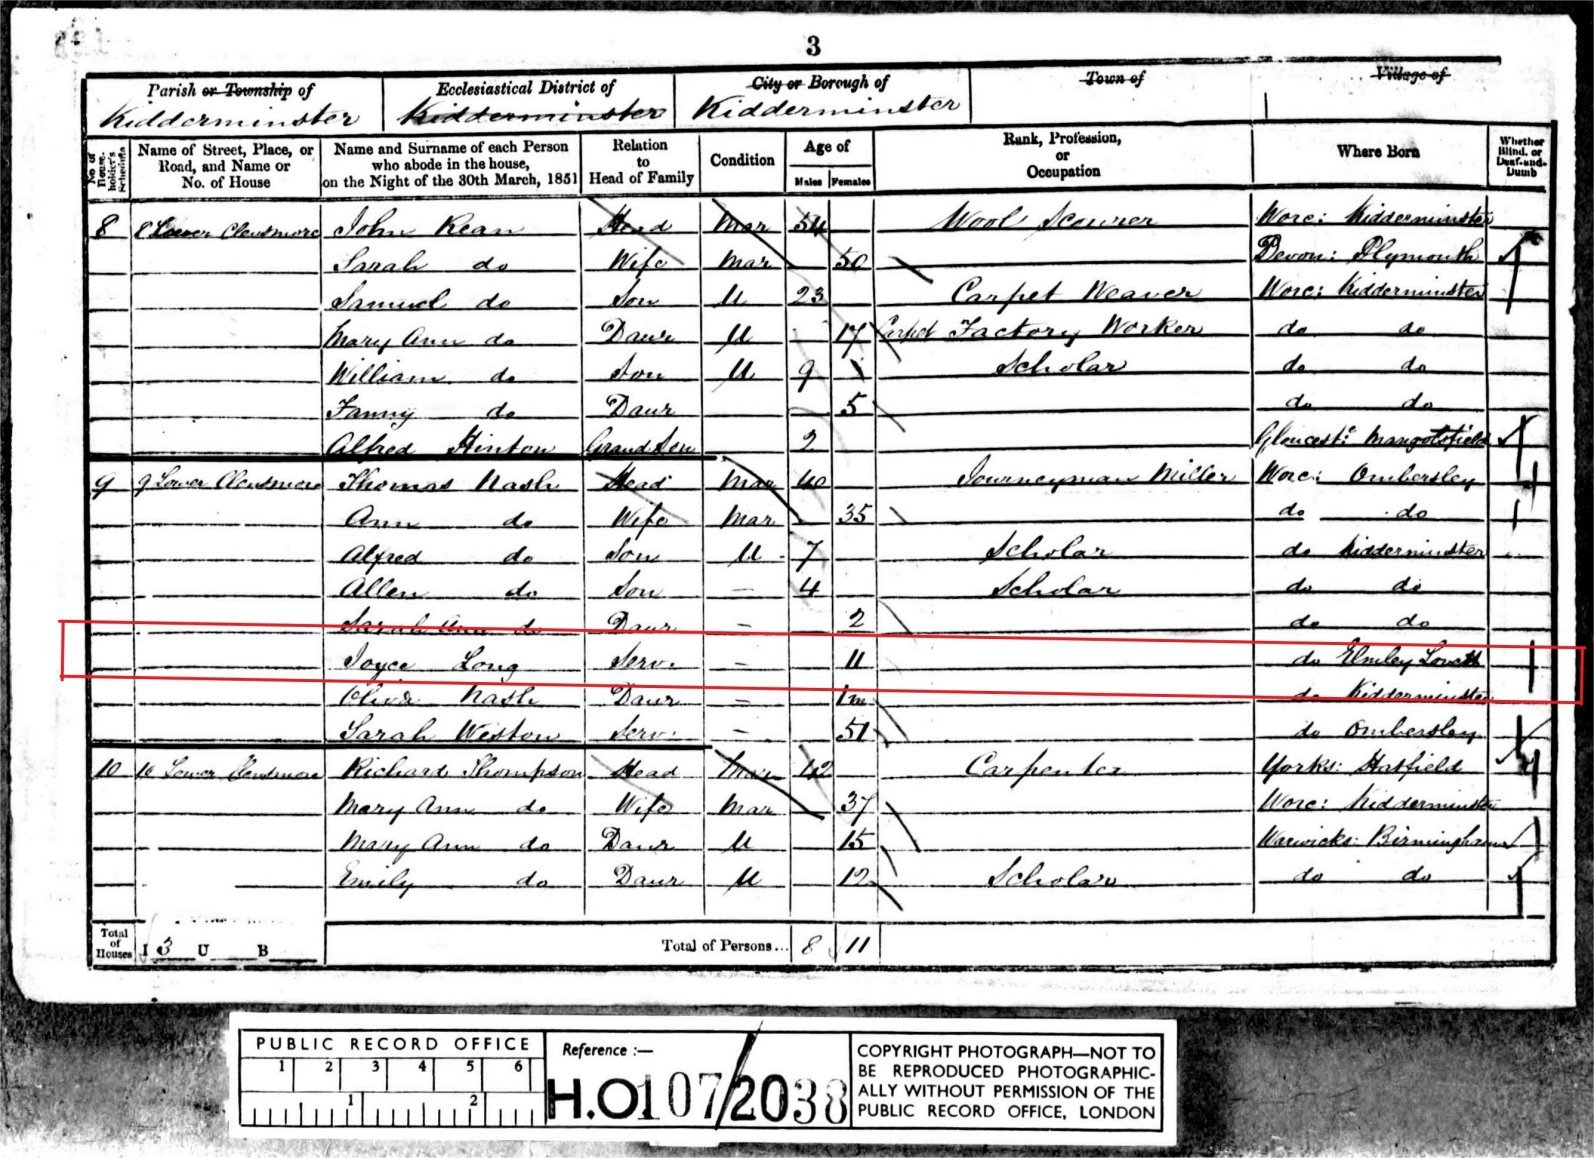 3
Parish or Township of
Kidderminster
Ecclesiastical District of
Kidderminster
City or Borough of
Kidderminster
Town of
Village of
No. of House-holder's Schedule
Name of Street, Place, or Road, and Name or No. of House
Name and Surname of each Person who abode in the house, on the Night of the 30th March, 1851
Relation to Head of Family
Condition
Age of
Males Females
Rank, Profession, or Occupation
Where Born
Whether Blind, or Deaf-and-Dumb
8 8 Lower Clensmore John Kean Head Mar 54 Wool Scourer Worc: Kidderminster
Sarah do Wife Mar 50 Devon: Plymouth
Samuel do Son U 23 Carpet Weaver Worc: Kidderminster
Mary Ann do Daur U 17 Carpet Factory Worker do do
William do Son U 9 Scholar do do
Fanny do Daur 5 do do
Alfred Hinton Grand Son 2 Gloucest: Mangotsfield
9 9 Lower Clensmore Thomas Nash Head Mar 40 Journeyman Miller Worc: Ombersley
Ann do Wife Mar 35 do do
Alfred do Son U 7 Scholar do Kidderminster
Allen do Son — 4 Scholar do do
Sarah Ann do Daur — 2 do do
Joyce Long Serv: — 11 do Elmley Lovett
Oliva Nash Daur — 1m do Kidderminster
Sarah Weston Serv: — 51 do Ombersley
10 10 Lower Clensmore Richard Thompson Head Mar 42 Carpenter Yorks: Hatfield
Mary Ann do Wife Mar 37 Worc: Kidderminster
Mary Ann do Daur U 15 Warwicks: Birmingham
Emily do Daur U 12 Scholar do do
Total of Houses I 3 U B Total of Persons... 8 11
PUBLIC RECORD OFFICE
1 2 3 4 5 6
1 2
Reference :—
H.O 107/2038
COPYRIGHT PHOTOGRAPH—NOT TO
BE REPRODUCED PHOTOGRAPHIC-
ALLY WITHOUT PERMISSION OF THE
PUBLIC RECORD OFFICE, LONDON